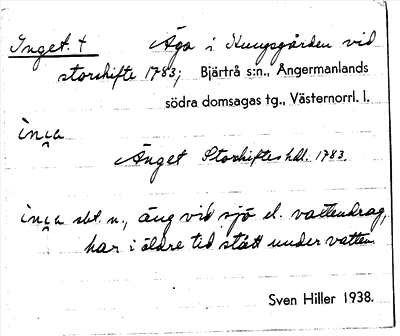 Inget. †
Äga i Kungsgården vid
storskifte 1783; Bjärtrå s:n., Ångermanlands
södra domsagas tg., Västernorrl. l.
inga
Änget Storskifteshdl. 1783.
inga sbt. n., äng vid sjö el. vattendrag,
har i äldre tid stått under vatten.
Sven Hiller 1938.